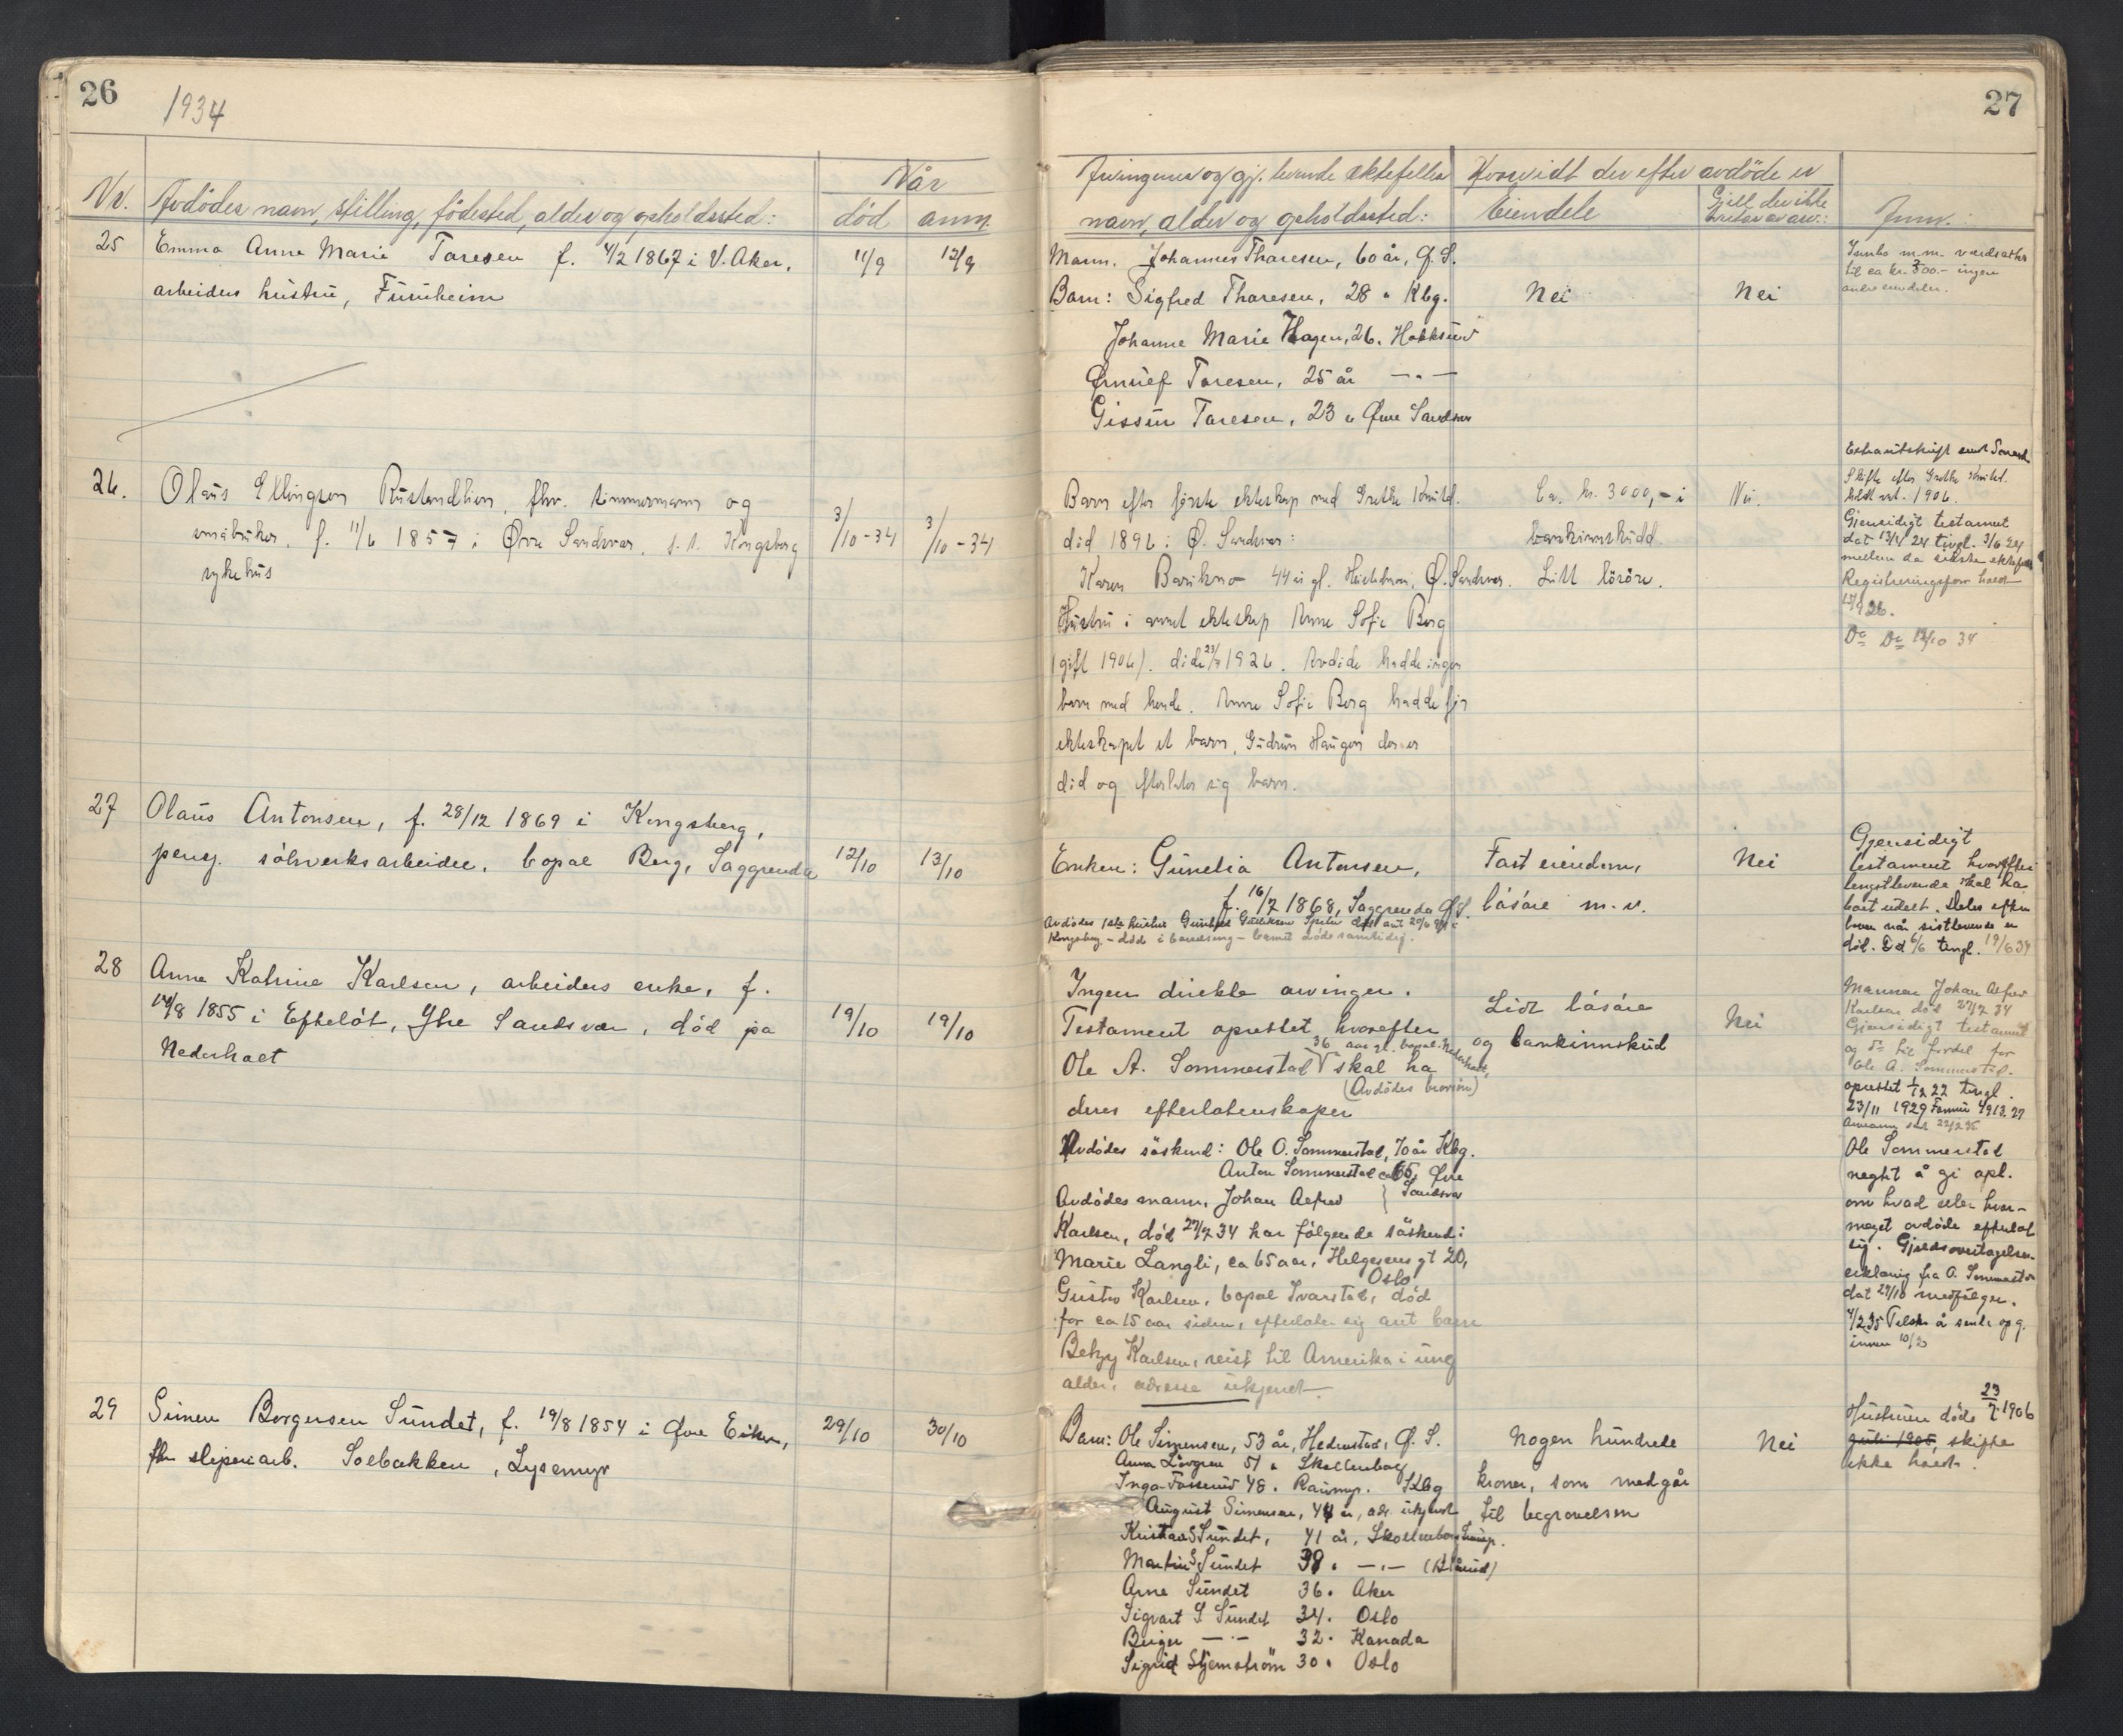 26
1934
Nr.
Avdødes navn, stilling, fødested, alder og opholdssted:
Når
død
anm.
25
Emma Anne Marie Taresen f. 4/2 1867 i V. Aker,
arbeiders hustru, Furuheim
11/9
12/9
26.
Olaus Ellingsen Rustandlien, fhv. tømmermann og
småbruker, f. 11/6 1857 i Øvre Sandsvær, s. s. Kongsberg
sykehus
3/10-34
3/10-34
27
Olaus Antonsen, f. 28/12 1869 i Kongsberg,
pensj. sølvverksarbeider, bopæl Berg, Saggrenda
12/10
13/10
28
Anna Katrine Karlsen, arbeiders enke, f.
14/8 1855 i Efteløt, Ytre Sandsvær, død på
Nederhaet
19/10
19/10
29
Simen Borgersen Sundet, f. 19/8 1854 i Øvre Eiker,
fhv sliperiarb. Solbakken, Lysemyr
29/10
30/10
27
Arvingenes og gj. levende ektefelles
navn, alder og opholdssted:
Hvorvidt der efter avdøde er
Eiendele
Gjell der ikke
Anm.:
Mann. Johannes Tharesen, 60 år, Ø. S.
Barn: Sigfred Tharesen, 28 " Kbg.
Johanne Marie Hagen, 26. Hokksund
Ørnulf Taresen, 25 år — " —
Gissur Taresen, 23 " Øvre Sandsvær
Nei
Nei
Innbo m.m. verdsattes
til ca kr. 300.- ingen
andre eiendeler.
Barn efter første ekteskap med Grethe Knutsd.
død 1896 i Ø. Sandsvær:
Karen Bærikmo 44 år gl. Ø. Sandsvær.
Hustru i annet ekteskap Anne Sofie Berg
(gift 1906). døde 23/7 1926. Avdøde hadde ingen
barn med hende. Anne Sofie Berg hadde før
ekteskapet et barn, Gudrun Haugen der er
død og efterlater sig barn.
Ca. kr. 3000,- i
bankinnskudd.
Litt løsøre.
Nei.
Skifte efter Grethe Knutsd.
holdt 1906.
Gjensidigt testament
dat 13/4 24 tingl. 3/6 24
mellem de sidste ektefeller
Registreringsforr. holdt
Do Do 12/10 34
Enken: Gunelia Antonsen,
f. 16/7 1868, Saggrenda Ø.S.
Avdødes 1ste hustru
Kongsberg - døde i barselseng - barnet døde samtidig.
Fast eiendom,
løsøre m.v.
Nei
Gjensidigt
testament hvorefter
lengstlevende skal ha
boet udelt. Deles efter
loven når sistlevende er
død. Dat 6/6 tingl. 19/6 34
Ingen direkte arvinger.
Testament oprettet, hvorefter
36 aar gl. bopæl Nederhaet,
Ole A. Sommerstad skal ha
(Avdødes brorsøn)
deres efterlatenskaper
Avdødes søskend: Ole O. Sommerstad, 70 år Kbg.
Anton Sommerstad ca 65, Øvre
Sandsvær
Avdødes mann, Johan Alfred
Karlsen, død 27/7 34 har følgende søskend:
Marie Langli, ca 65 aar, Helgesensgt 20,
Oslo
Gustav Karlsen, bopæl Ivarstad, død
for ca 15 aar siden, efterlater sig ant. barn
Betzy Karlsen, reist til Amerika i ung
alder, adresse ukjendt.
Litt løsøre
og bankinnskud
Nei
Mannen Johan Alfred
Karlsen død 27/7 34
Gjensidigt testament
og do til fordel for
Ole A. Sommerstad.
oprettet 22 tingl.
23/11 1929
Ole Sommerstad
neght å gi opl.
om hvad eller hvor-
meget avdøde efterlot
sig. Gjeldsovertagelses-
erklæring fra O. Sommerstad
dat 29/10 medfølger.
Barn: Ole Simensen, 53 år, Hedenstad, Ø. S.
Anna Løvgren 51 " Skollenborg
Inga Fosserud 48. Raumyr. Kbg
August Simensen, 44 år, adr. ukjendt
Kristian S Sundet, 41 år, Skollenborg
Martin S Sundet 38. — " —
Arne Sundet 36. Aker
Sigvart S Sundet 34. Oslo
Birger — " — 32. Kanada
Sigrid Stjernstrøm 30. Oslo
Nogen hundrede
kroner, som medgår
til begravelsen
Nei
Hustruen døde 23/7 1906
juli 1905, skifte
ikke holdt.